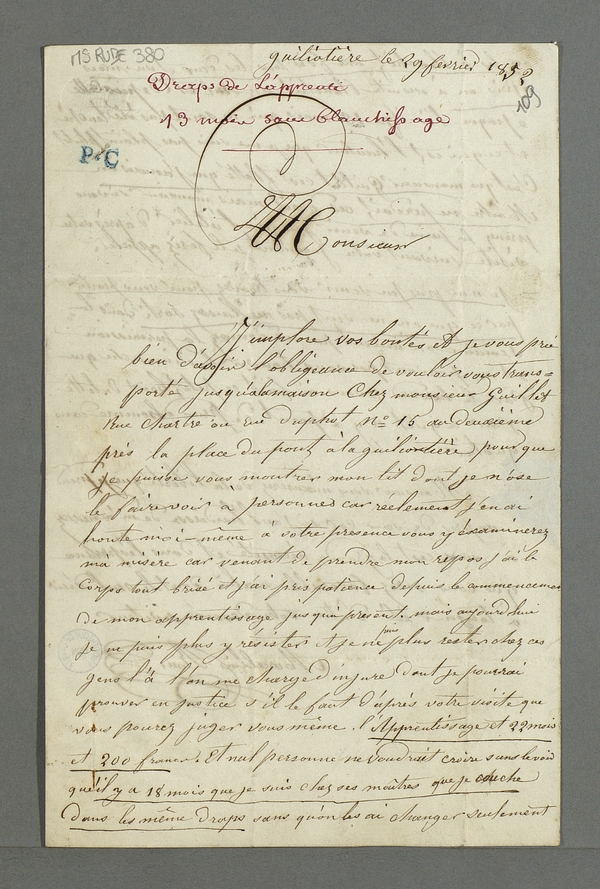 MS RUDE 380
guiliotière le 29 fevrier 1852
109
Draps de L'apprenti
13 mois sans blanchissage
P C
Monsieur
J'implore vos bontés et je vous prie
bien d'avoir l'obligeance de vouloir vous trans=
porté jusqualamaison Chez monsieur Guillet
Rue Chartre ou rue duphot no 15 au deuxième
près la place du pont à la guiliontière pour que
je puisse vous montrer mon lit dont je n'ose
le faire voir à personnes car reelement j'en ai
honte moi-même à votre presence vous y examinerez
ma misère car venant de prendre mon repos j'ai le
Corps tout brisé et j'ai pris patience depuis le commencement
de mon apprentissage jusqu'a present. mais aujourd'hui
je ne puis plus y résister et je ne puis plus rester chez ces
gens l'à l'on me charge d'injure dont je pourrai
prouver en justice s'il le faut d'après votre visite que
vous pourez juger vous même. l'Apprentissage et 22 mois
et 200 francs. Et nul personne ne voudrait croire sans le voir
qu'il y a 18 mois que je suis chez ses maîtres que je couche
dans les même draps sans qu'on les ai changer seulement